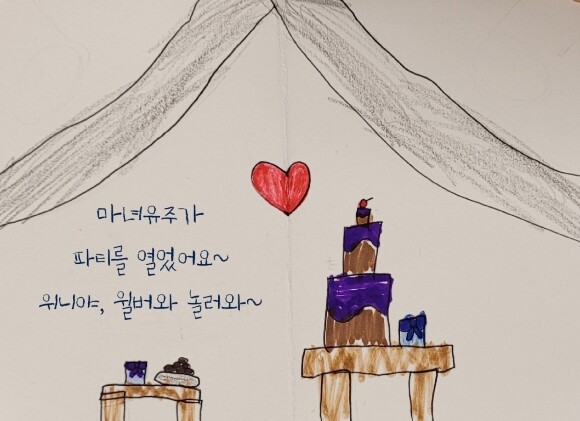 마녀유주가
파티를 열었어요~
위니야, 윌버와 놀러와~